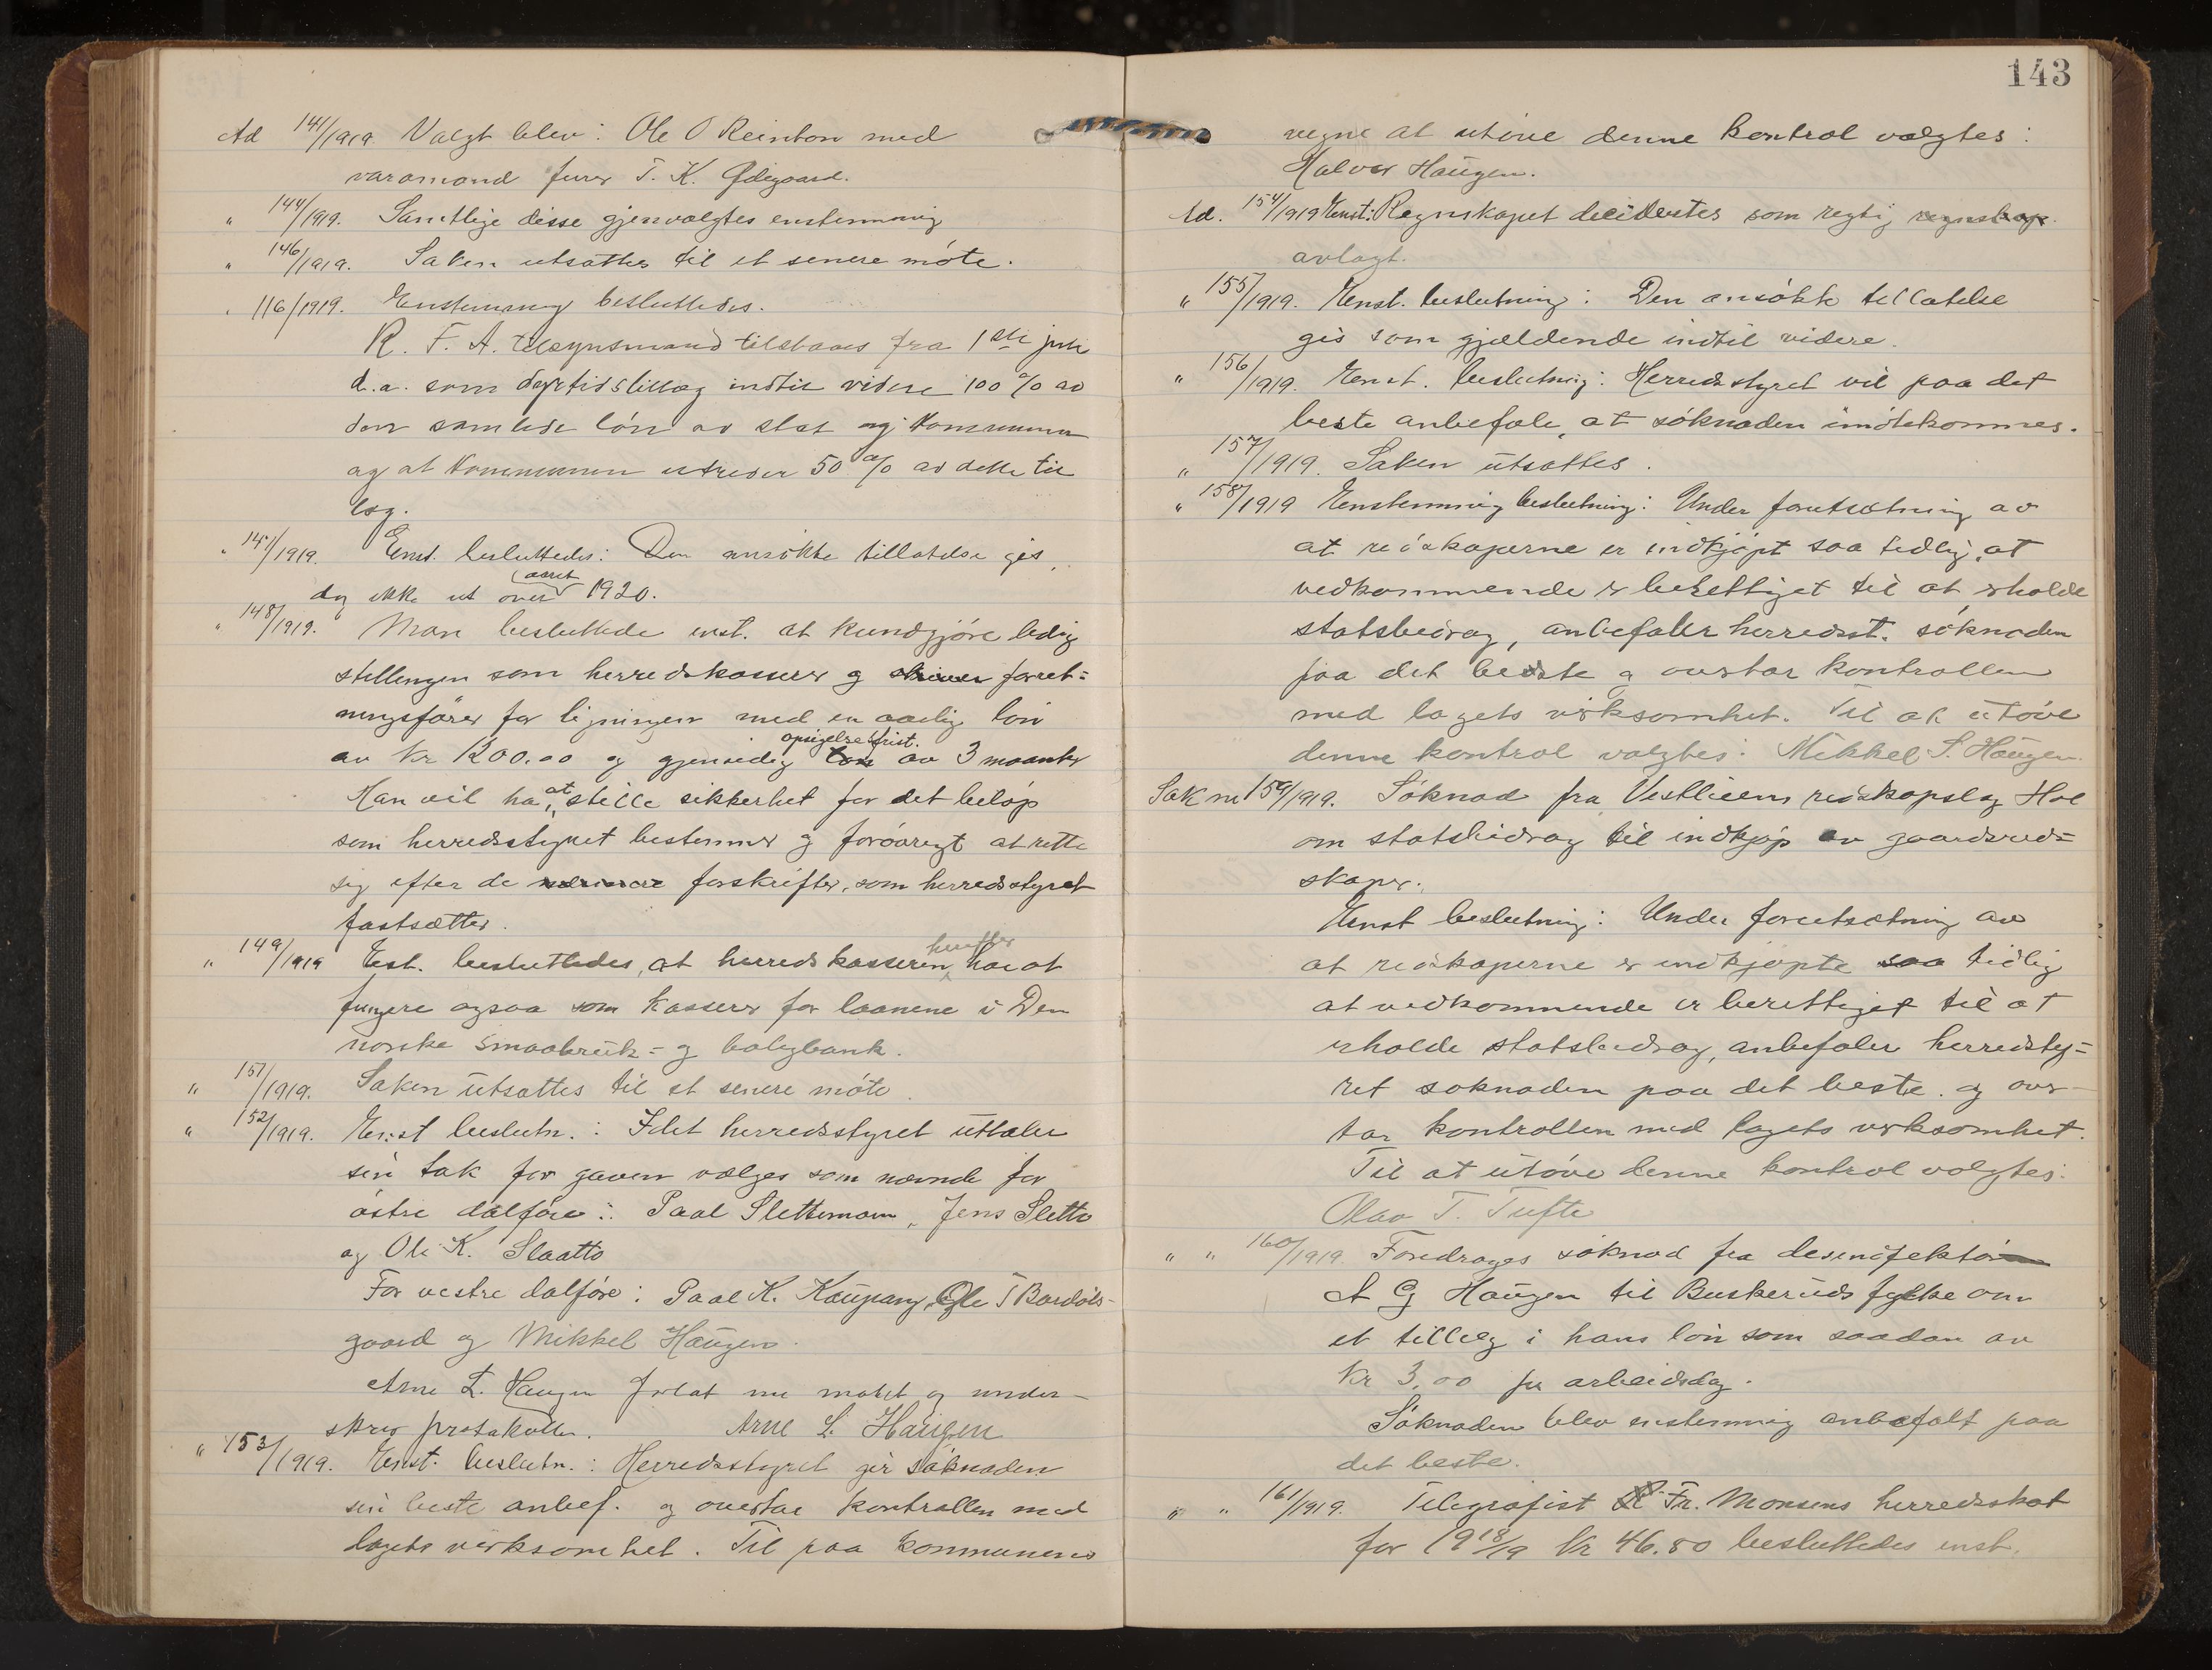 Ad 141/1919. Valgt blev: Ole O Reinton med
varamand furer T. K. Ødegaard.
" 144/1919. Samtlige disse gjenvalgtes enstemmig
" 146/1919. Saken utsattes til et senere møte.
" 116/1919. Enstemmig besluttedes.
R. F. A. tilsynsmand tilstaaes fra 1ste juli
d.a. som dyrtidstillæg indtil videre 100 % av
den samlede løn av stat og kommunen
og at kommunen utreder 50 % av dette til
læg.
" 147/1919. Enst. besluttedes: Den ansökte tillatelse gis,
dog ikke ut over aaret 1920.
" 148/1919. Man besluttede enst. at kundgjöre ledig
stillingen som herredskasserer og forret-
ningsförer for ligningen med en aarlig lön
av Kr 1200.00 og gjensidig opsigelsesfrist av 3 maaneder
Han vil ha at stille sikkerhet for det belöp
som herredsstyret bestemmer og forövrigt at rette
sig efter de forskrifter, som herredsstyret
fastsætter.
" 149/1919 Est. besluttedes, at herredskassereren herefter har at
fungere ogsaa som kasserer for laanene i Den
norske smaabruk- og boligbank.
" 151/1919. Saken utsattes til et senere möte.
" 152/1919. Enst beslutn.: Idet herredsstyret uttaler
sin tak for gaven vælges som nævnde for
östre dalföre: Paal Slettemoen, Jens Sletto
og Ole K. Slaatto
For vestre dalföre: Paal K. Kaupang, Ole T Bardöls-
gaard og Mikkel Haugen.
Arne L. Haugen forlot nu mötet og under-
skrev protokollen. Arne L. Haugen
" 153/1919. Enst. beslutn.: Herredsstyret gir söknaden
sin beste anbef. og overtar kontrollen med
lagets virksomhet. Til paa kommunens
143
vegne at utöve denne kontrol valgtes:
Halvor Haugen.
Ad. 154/1919 Enst: Regnskapet decidertes som regtig regnskap
avlagt.
" 155/1919. Enst. beslutning: Den ansökte tillatelse
gis som gjældende indtil videre.
" 156/1919. Enst. beslutning: Herredsstyret vil paa det
beste anbefale, at söknaden imötekommes.
" 157/1919. Saken utsattes.
" 158/1919 Enstemmig beslutning: Under forutsætning av
at redskaperne er indkjöpt saa tidlig, at
vedkommende er berettiget til at erholde
statsbidrag, anbefaler herredsst. söknaden
paa det bedste og overtar kontrollen
med lagets virksomhet. Til at utöve
denne kontrol valgtes: Mikkel S. Haugen.
Sak nr 159/1919. Söknad fra Vestlicens redskapslag Hol
om statsbidrag til indkjöp av gaardsred-
skaper.
Enst beslutning: Under forutsætning av
at redskaperne er indkjöpte saa tidlig
at vedkommende er berettiget til at
erholde statsbidrag, anbefaler herredsty-
ret soknaden paa det beste og over-
tar kontrollen med lagets virksomhet.
Til at utöve denne kontrol valgtes:
Olav T. Tufte
" " 160/1919. Foredroges söknad fra desinfektör
A G Haugen til Buskeruds fylke om
et tillæg i hans lön som saadan av
Kr 3,00 pr arbeidsdag.
Söknaden blev enstemmig anbefalt paa
det beste.
" " 161/1919. Telegrafist Fr. Monsens herredsskat
for 1918/19 Kr 46.80 besluttedes enst.